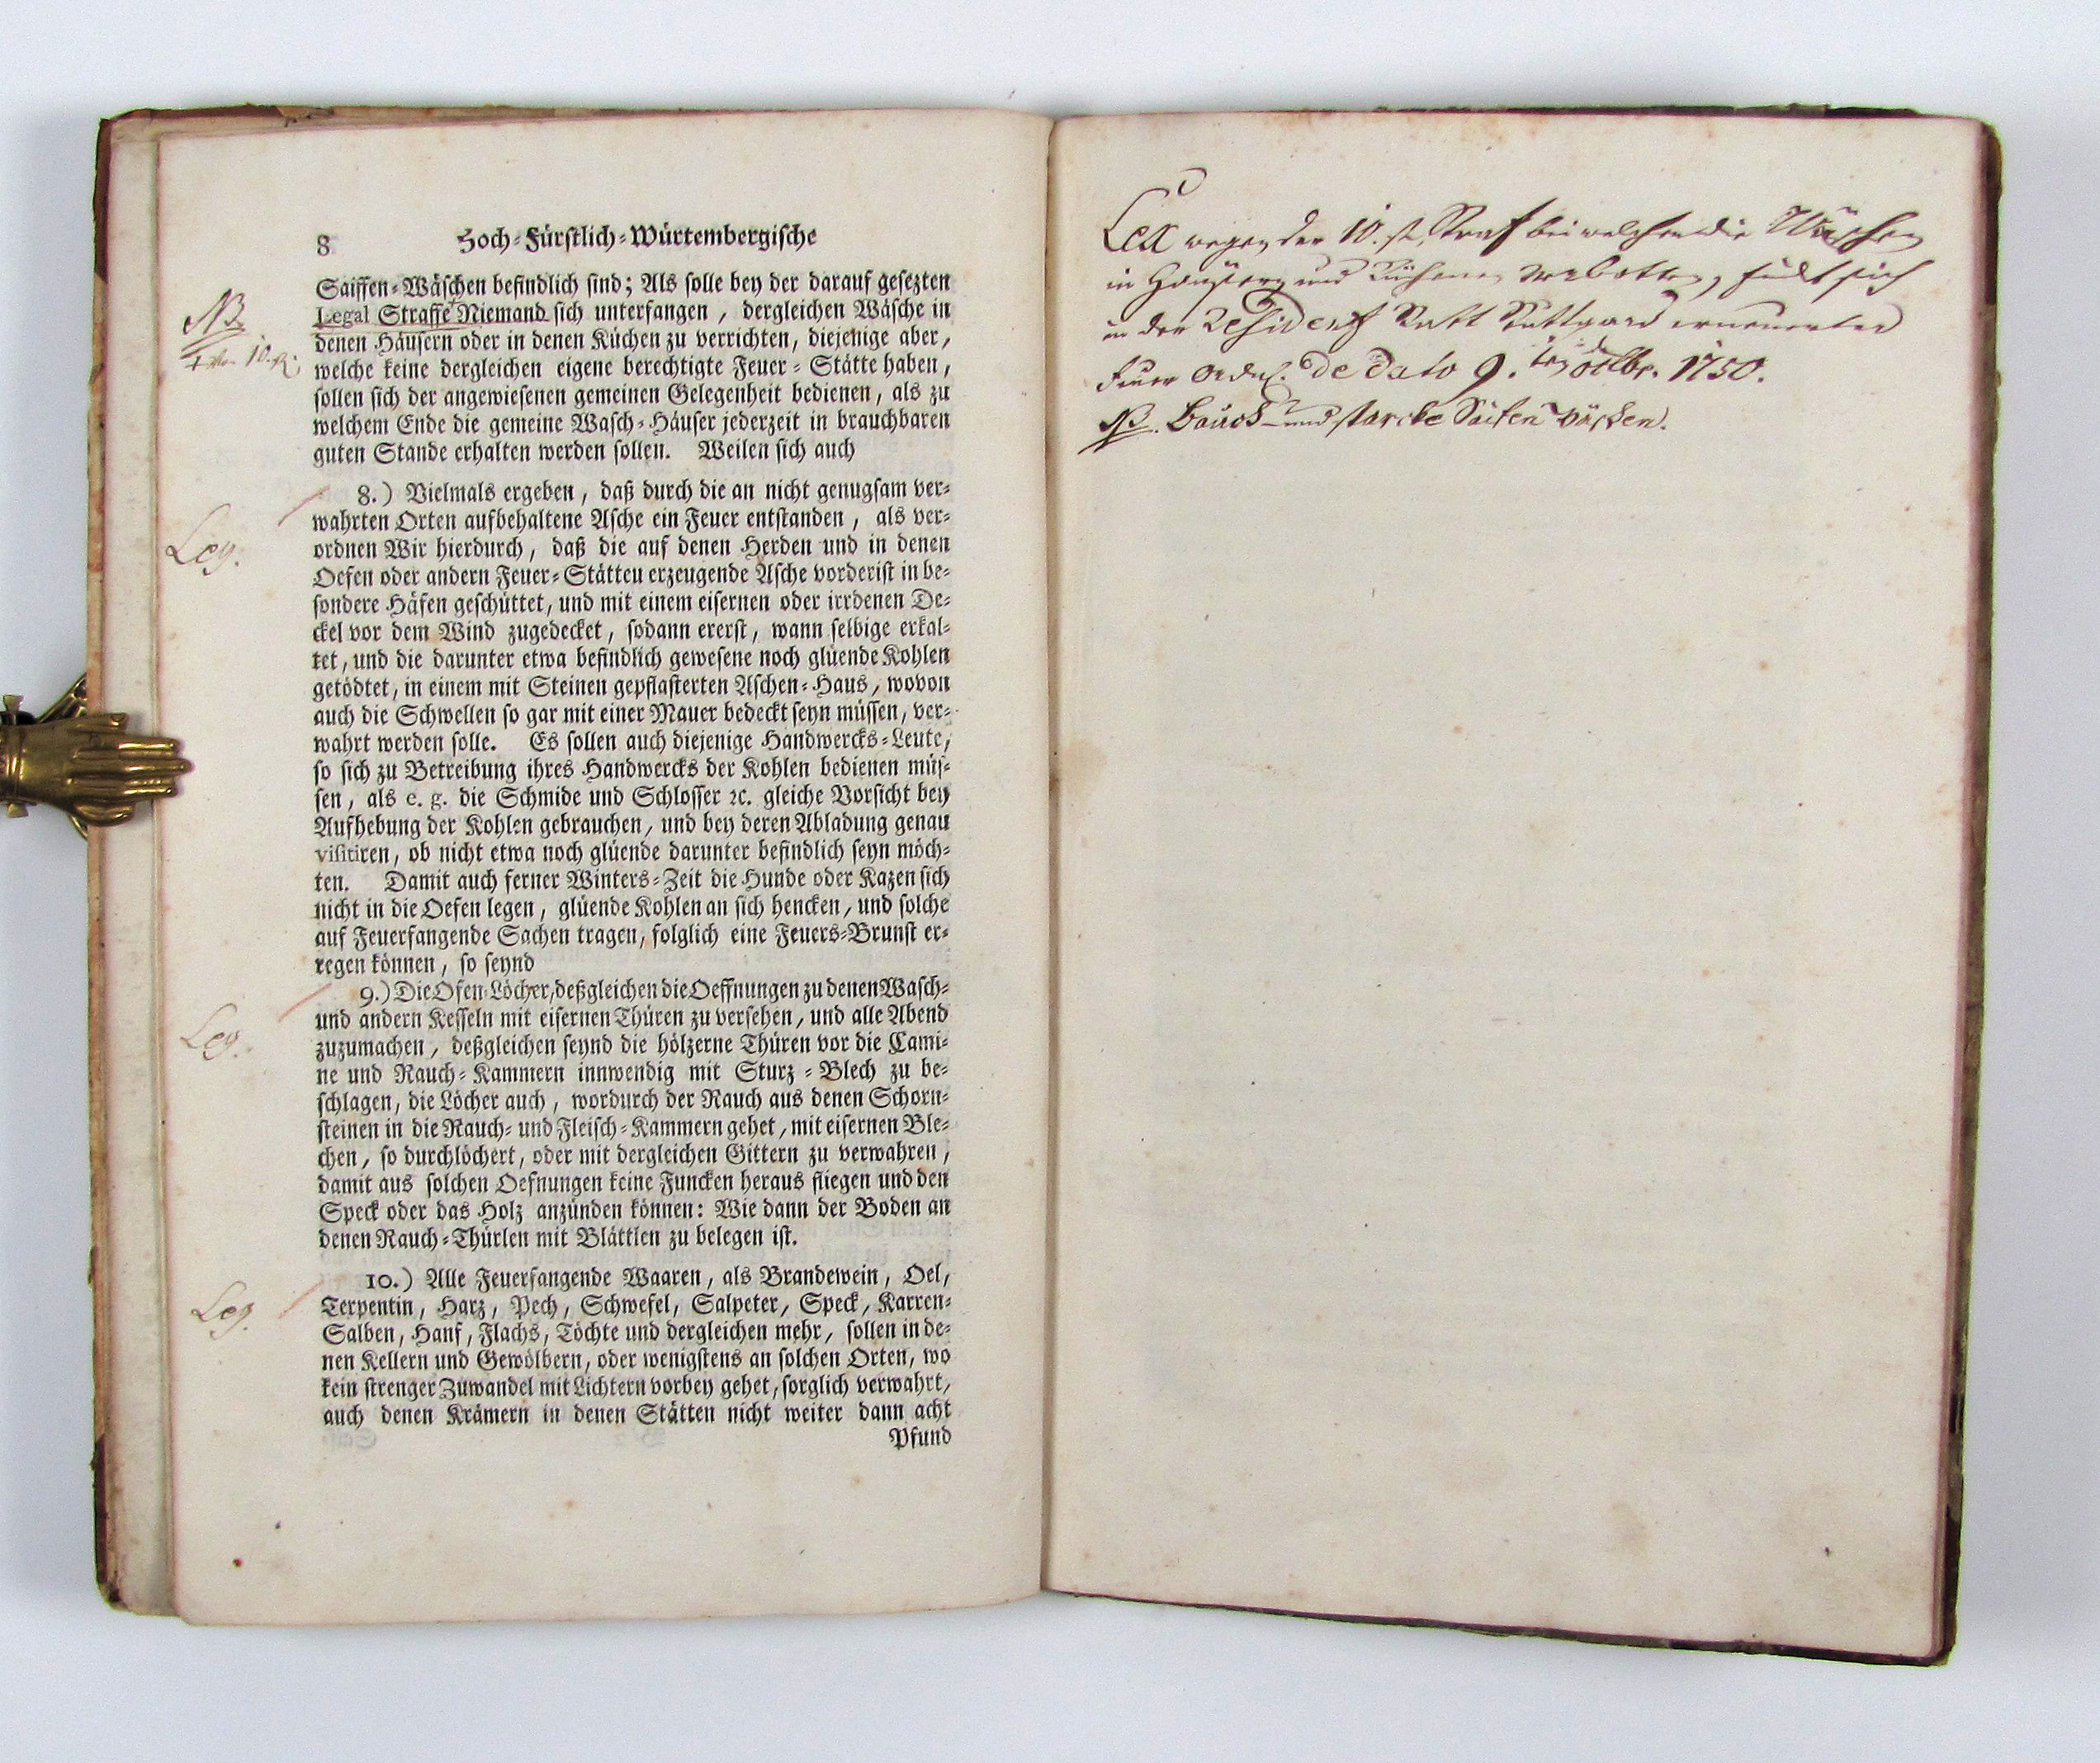 8 Hoch-Fürstlich-Würtembergische
Saiffen-Wäschen befindlich sind; Als solle bey der darauf gesezten
NB
Legal Straffe Niemand sich unterfangen, dergleichen Wäsche in
denen Häusern oder in denen Küchen zu verrichten, diejenige aber,
von 10. fl.
welche keine dergleichen eigene berechtigte Feuer-Stätte haben,
sollen sich der angewiesenen gemeinen Gelegenheit bedienen, als zu
welchem Ende die gemeine Wasch-Häuser jederzeit in brauchbaren
guten Stande erhalten werden sollen. Weilen sich auch
8.) Vielmals ergeben, daß durch die an nicht genugsam ver-
wahrten Orten aufbehaltene Asche ein Feuer entstanden, als ver-
Leg.
ordnen Wir hierdurch, daß die auf denen Herden und in denen
Oefen oder andern Feuer-Stätteu erzeugende Asche vorderist in be-
sondere Häfen geschüttet, und mit einem eisernen oder irrdenen De-
ckel vor dem Wind zugedecket, sodann ererst, wann selbige erkal-
tet, und die darunter etwa befindlich gewesene noch glüende Kohlen
getödtet, in einem mit Steinen gepflasterten Aschen-Haus, wovon
auch die Schwellen so gar mit einer Mauer bedeckt seyn müssen, ver-
wahrt werden solle. Es sollen auch diejenige Handwercks-Leute,
so sich zu Betreibung ihres Handwercks der Kohlen bedienen müs-
sen, als e. g. die Schmide und Schlosser ꝛc. gleiche Vorsicht bey
Aufhebung der Kohlen gebrauchen, und bey deren Abladung genau
visitiren, ob nicht etwa noch glüende darunter befindlich seyn möch-
ten. Damit auch ferner Winters-Zeit die Hunde oder Kazen sich
nicht in die Oefen legen, glüende Kohlen an sich hencken, und solche
auf Feuerfangende Sachen tragen, folglich eine Feuers-Brunst er-
regen können, so seynd
9.) Die Ofen-Löcher, deßgleichen die Oeffnungen zu denen Wasch-
und andern Kesseln mit eisernen Thüren zu versehen, und alle Abend
Leg.
zuzumachen, deßgleichen seynd die hölzerne Thüren vor die Cami-
ne und Rauch-Kammern innwendig mit Sturz-Blech zu be-
schlagen, die Löcher auch, wordurch der Rauch aus denen Schorn-
steinen in die Rauch- und Fleisch-Kammern gehet, mit eisernen Ble-
chen, so durchlöchert, oder mit dergleichen Gittern zu verwahren,
damit aus solchen Oefnungen keine Funcken heraus fliegen und den
Speck oder das Holz anzünden können: Wie dann der Boden an
denen Rauch-Thürlen mit Blättlen zu belegen ist.
10.) Alle Feuerfangende Waaren, als Brandewein, Oel,
Leg.
Terpentin, Harz, Pech, Schwefel, Salpeter, Speck, Karren-
Salben, Hanf, Flachs, Töchte und dergleichen mehr, sollen in de-
nen Kellern und Gewölbern, oder wenigstens an solchen Orten, wo
kein strenger Zuwandel mit Lichtern vorbey gehet, sorglich verwahrt,
auch denen Krämern in denen Stätten nicht weiter dann acht
Pfund
Lex wegen der 10. fl. Straf bei welcher die Wäschen
in Häusern und Küchen verbotten, findt sich
in der Residenz Statt Stuttgard erneuerter
Feuer Ordn. de dato 9. ten 8tbr. 1750.
NB. Bauch- und starcke Saifen wäschen.